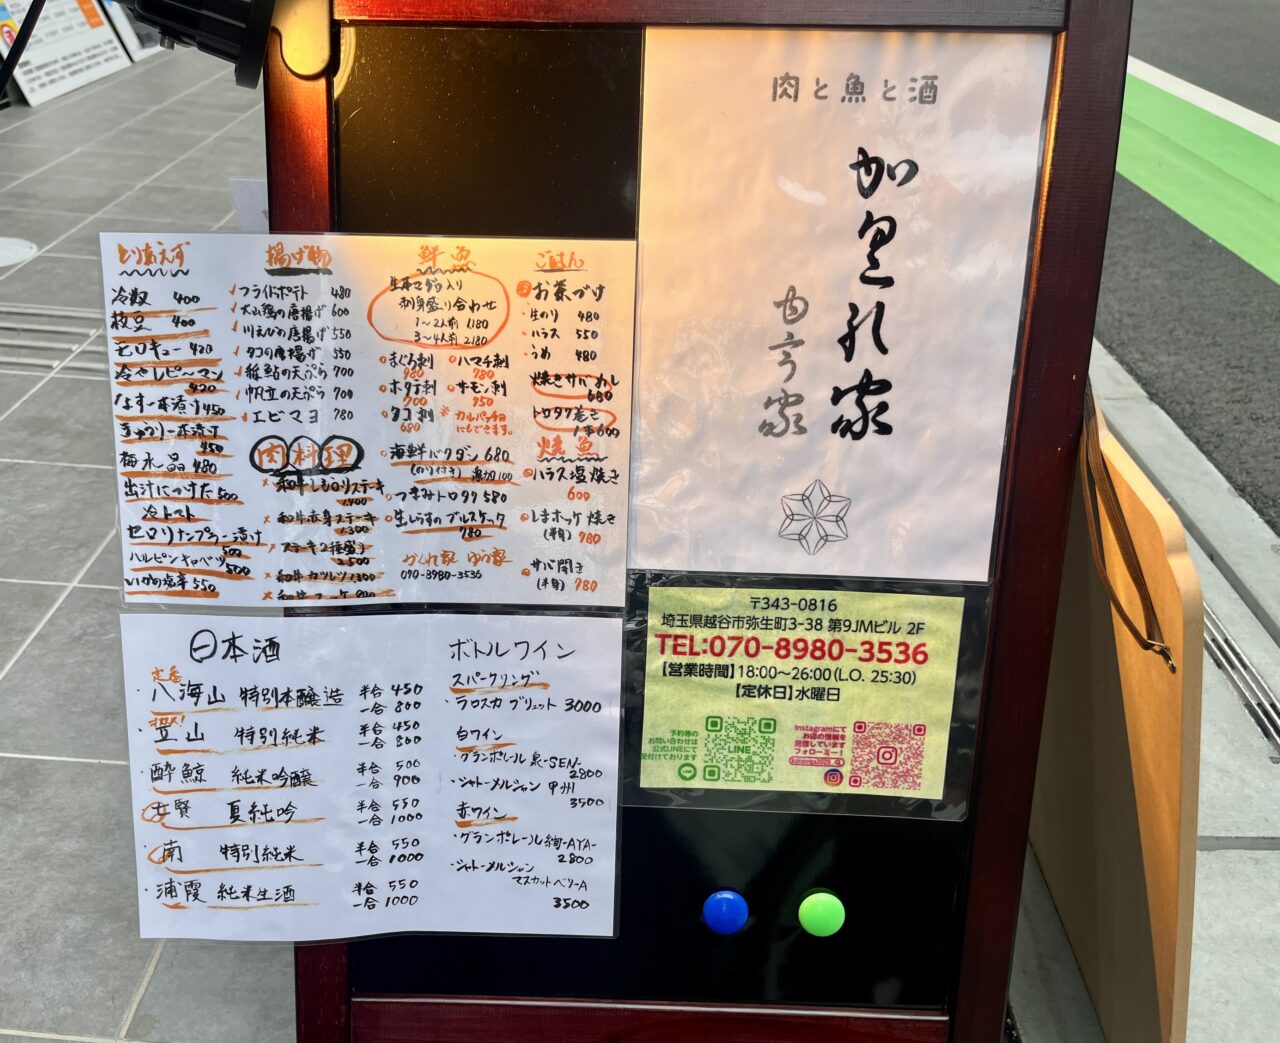 肉と魚と酒
加具礼家
ゆう家
とりあえず
冷奴 400
枝豆 400
モロキュー 420
冷やしピーマン
420
なす一本漬け 450
きゅうり一本漬け
450
梅水晶 480
出汁につけた 500
冷トマト
セロリナンプラー漬け
500
ハルピンキャベツ
500
いかの塩辛 550
揚げ物
フライドポテト 480
大山鶏の唐揚げ 600
川えびの唐揚げ 550
タコの唐揚げ 550
稚鮎の天ぷら 700
帆立の天ぷら 700
エビマヨ 780
肉料理
和牛しもふりステーキ
1,400
和牛赤身ステーキ
1,300
ステーキ2種盛り
2,500
和牛カツレツ 1,300
鮮魚
生本マグロ入り
刺身盛り合わせ
1〜2人前 1,180
3〜4人前 2,180
まぐろ刺 980
ハマチ刺 780
ホタテ刺 700
サーモン刺 750
タコ刺 680
※カルパッチョ
にもできます。
海鮮バクダン 680
(のり付き) 追加100
つまみトロタク 580
生しらすのブルスケッタ
780
かくれ家 ゆう家
070-8980-3536
ごはん
お茶づけ
・生のり 480
・ハラス 550
・うめ 480
焼きサバめし
680
トロタク巻き
1本600
焼魚
ハラス塩焼き
600
しまホッケ焼き
(半身) 780
サバ開き
(半身) 780
日本酒
定番
・八海山 特別本醸造 半合 450
一合 800
・立山 特別純米 半合 450
一合 800
・酔鯨 純米吟醸 半合 500
一合 900
賢 夏純吟 半合 550
一合 1000
・南 特別純米 半合 550
一合 1000
・浦霞 純米生酒 半合 550
一合 1000
ボトルワイン
スパークリング
・ラロスカ ブリュット 3000
白ワイン
・グランポレール 泉-SEN-
2800
・シャトーメルシャン 甲州
3500
赤ワイン
・グランポレール 絢-AYA-
2800
・シャトーメルシャン
マスカットベリーA
3500
〒343-0816
埼玉県越谷市弥生町3-38 第9JMビル 2F
TEL:070-8980-3536
【営業時間】18:00〜26:00(L.O. 25:30)
【定休日】水曜日
予約等の
お問い合わせは
公式LINEにて
受付けております
LINE
Instagramにて
お店の情報を
発信しています
フォローミー!